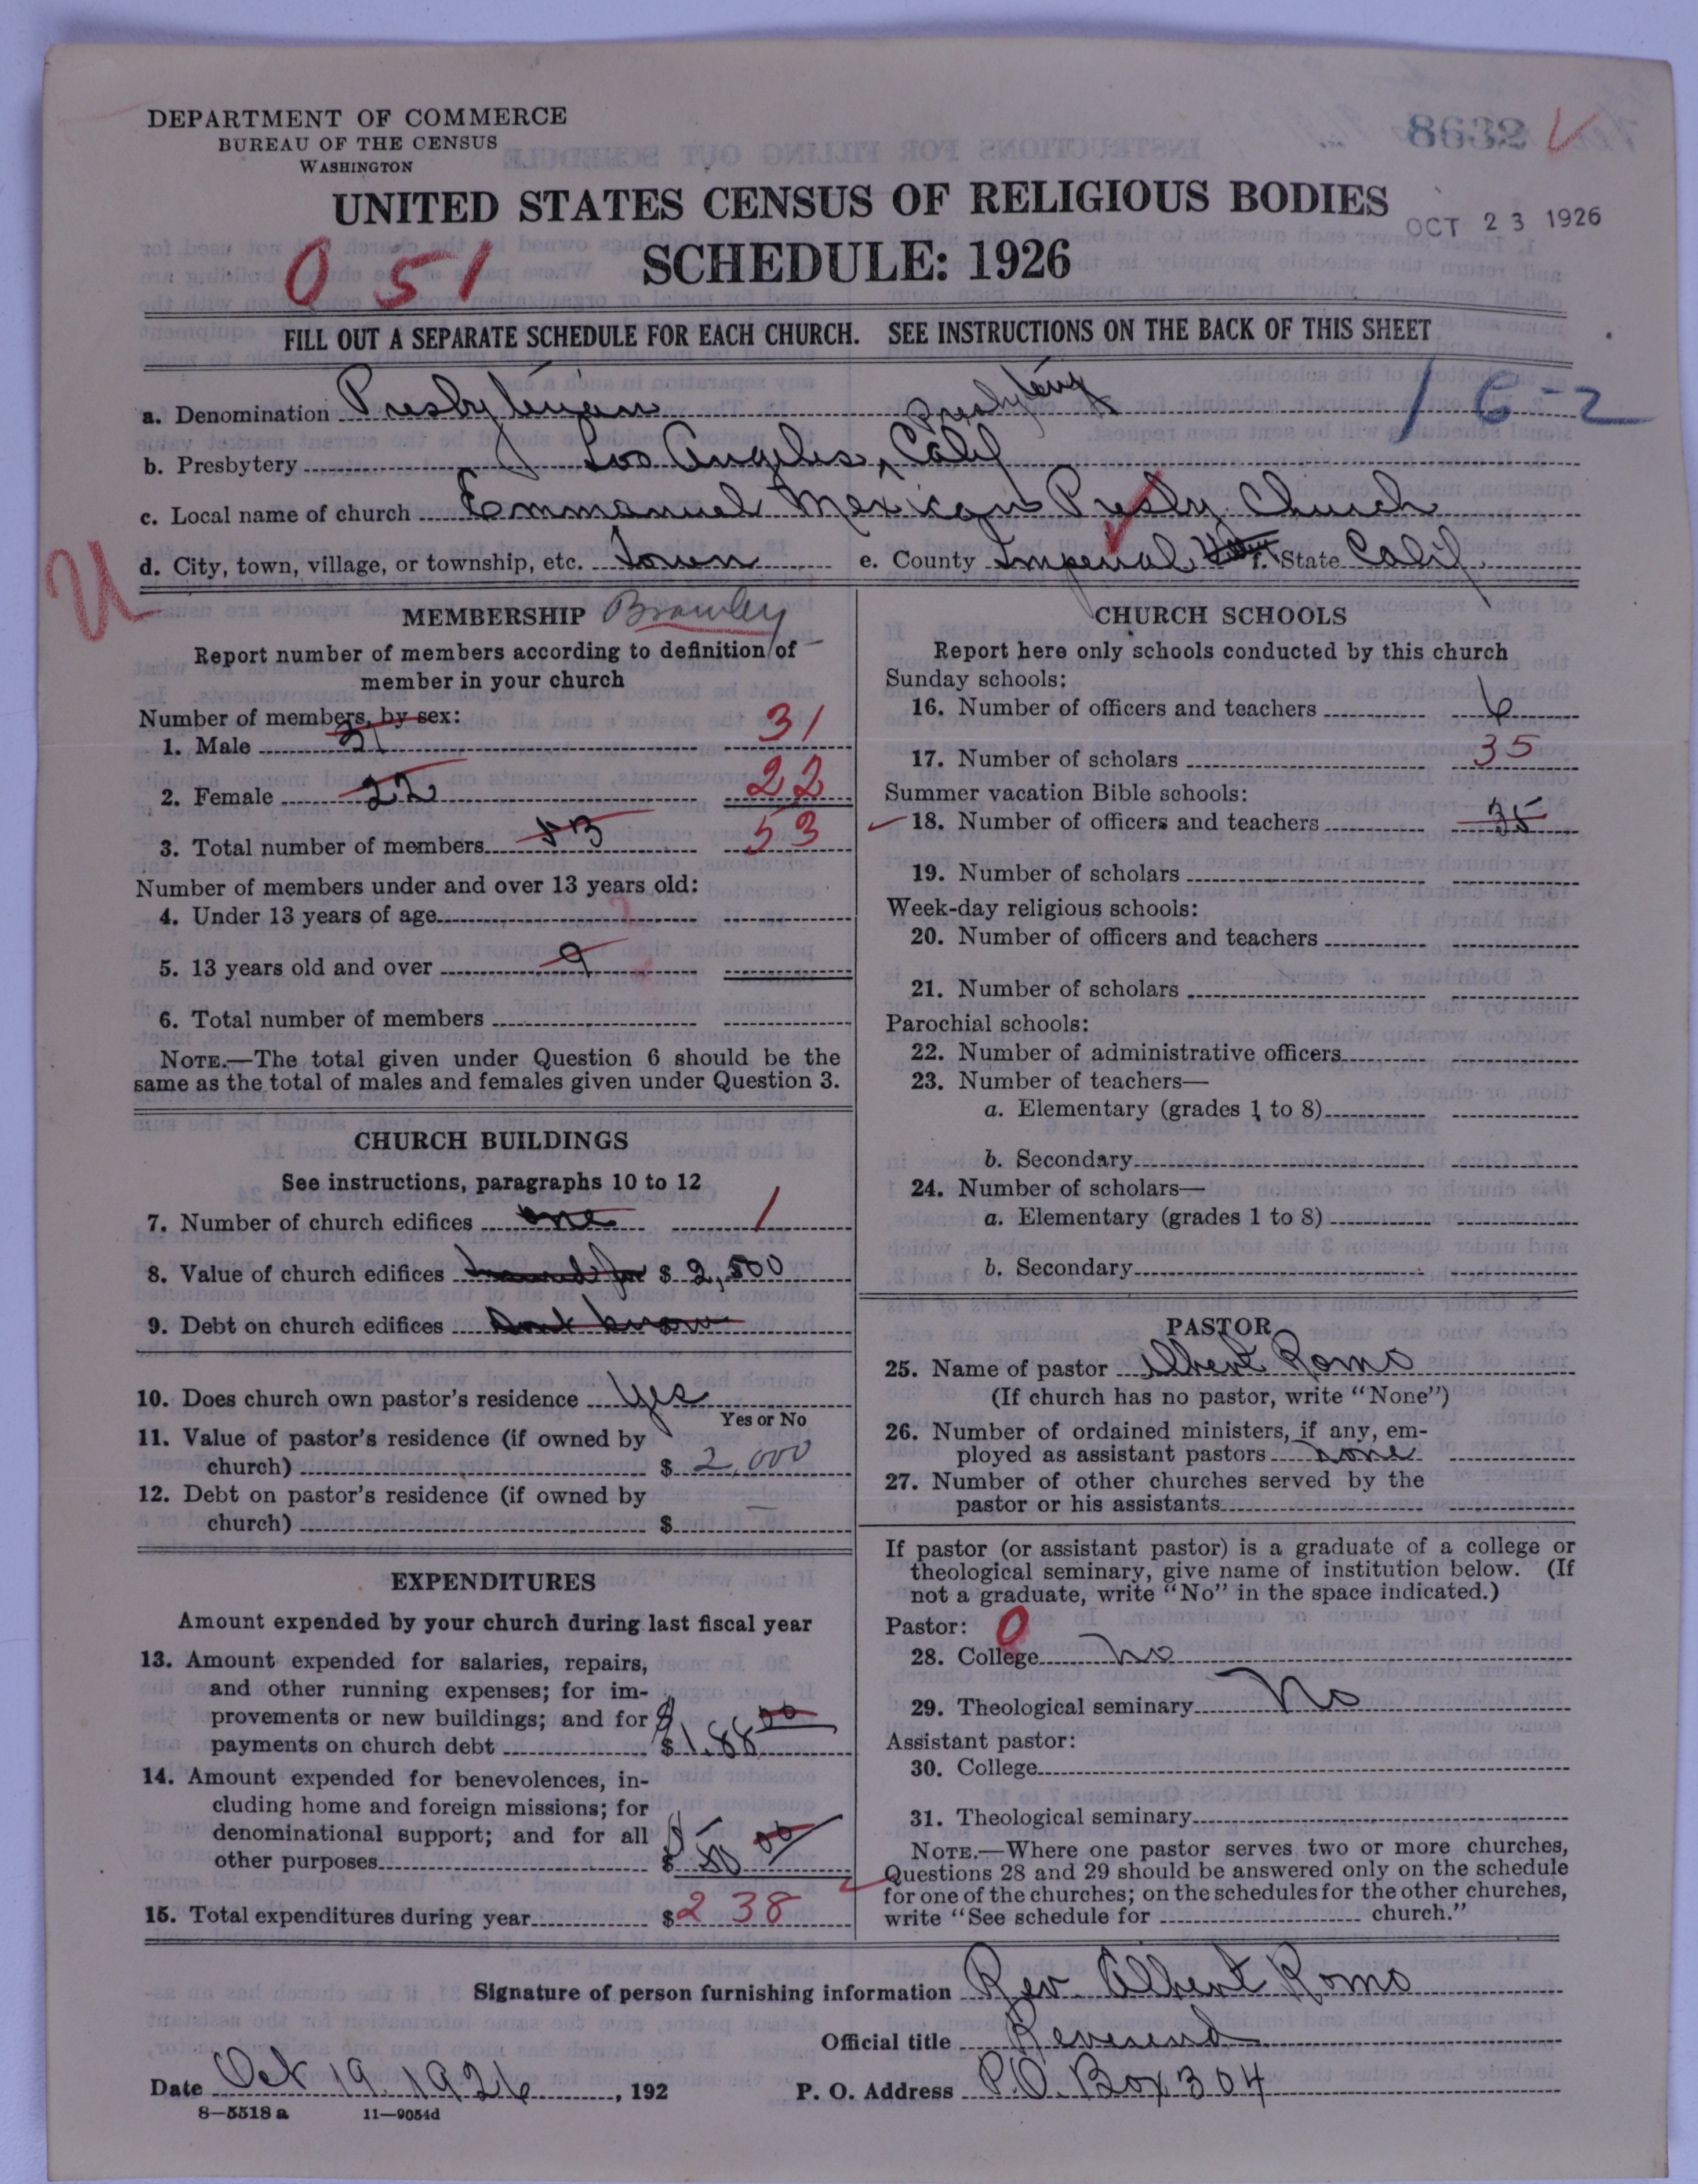 DEPARTMENT OF COMMERCE
BUREAU OF THE CENSUS
WASHINGTON
8632
UNITED STATES CENSUS OF RELIGIOUS BODIES
OCT 23 1926
SCHEDULE: 1926
051
FILL OUT A SEPARATE SCHEDULE FOR EACH CHURCH. SEE INSTRUCTIONS ON THE BACK OF THIS SHEET
16-2
a. Denomination Presbyterian
b. Presbytery Los Angeles, Calif Presbytery
c. Local name of church Emmanuel Mexican Presby. Church
d. City, town, village, or township, etc. Town e. County Imperial f. State Calif
U
MEMBERSHIP Brawley
Report number of members according to definition of
member in your church
Number of members, by sex:
1. Male 31 31
2. Female 22 22
3. Total number of members 53 53
Number of members under and over 13 years old:
4. Under 13 years of age
5. 13 years old and over 9
6. Total number of members
NOTE.—The total given under Question 6 should be the
same as the total of males and females given under Question 3.
CHURCH BUILDINGS
See instructions, paragraphs 10 to 12
7. Number of church edifices one 1
8. Value of church edifices Insured for $ 2,500
9. Debt on church edifices Dont know
10. Does church own pastor's residence Yes
Yes or No
11. Value of pastor's residence (if owned by
church) $ 2,000
12. Debt on pastor's residence (if owned by
church) $ —
EXPENDITURES
Amount expended by your church during last fiscal year
13. Amount expended for salaries, repairs,
and other running expenses; for im-
provements or new buildings; and for
payments on church debt $ 188 00
14. Amount expended for benevolences, in-
cluding home and foreign missions; for
denominational support; and for all
other purposes $ 50 00
15. Total expenditures during year $ 238
CHURCH SCHOOLS
Report here only schools conducted by this church
Sunday schools:
16. Number of officers and teachers 6
17. Number of scholars 35
Summer vacation Bible schools:
18. Number of officers and teachers 35
19. Number of scholars
Week-day religious schools:
20. Number of officers and teachers
21. Number of scholars
Parochial schools:
22. Number of administrative officers
23. Number of teachers—
a. Elementary (grades 1 to 8)
b. Secondary
24. Number of scholars—
a. Elementary (grades 1 to 8)
b. Secondary
PASTOR
25. Name of pastor Albert Romo
(If church has no pastor, write "None")
26. Number of ordained ministers, if any, em-
ployed as assistant pastors none
27. Number of other churches served by the
pastor or his assistants
If pastor (or assistant pastor) is a graduate of a college or
theological seminary, give name of institution below. (If
not a graduate, write "No" in the space indicated.)
Pastor: 0
28. College No
29. Theological seminary No
Assistant pastor:
30. College
31. Theological seminary
NOTE.—Where one pastor serves two or more churches,
Questions 28 and 29 should be answered only on the schedule
for one of the churches; on the schedules for the other churches,
write "See schedule for church."
Signature of person furnishing information Rev. Albert Romo
Official title Reverend
Date Oct 19 1926, 192 P. O. Address P.O. Box 304
8—5518 a 11—9054d